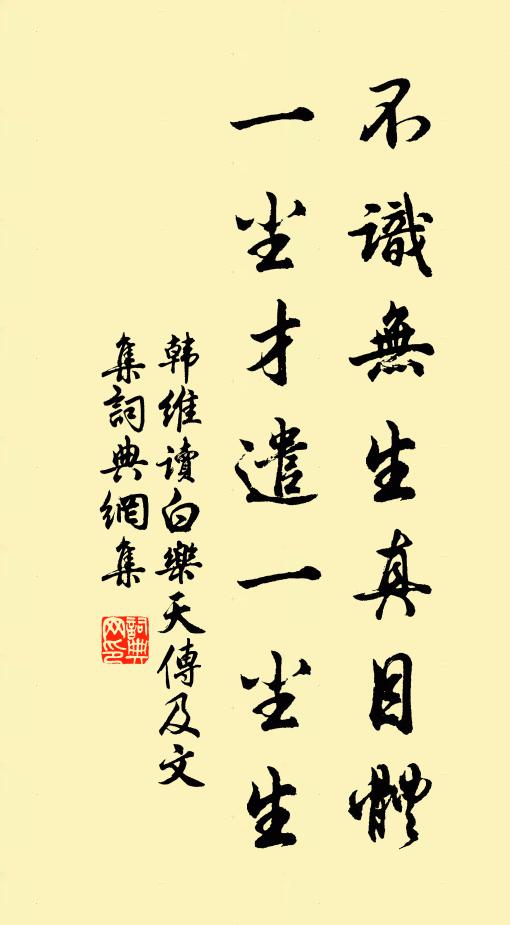 不識無生真目體
一尘才遣一尘生
韩維读白樂天傳及文
集詞典網集
詞典
网印